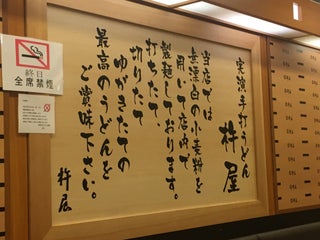 実演手打うどん
杵屋
当店では
無漂白の小麦粉を
用いて店内で
製麺しております。
打ちたて
切りたて
ゆがきたての
最高のうどんを
ご賞味下さい。
杵屋
終日
全席禁煙